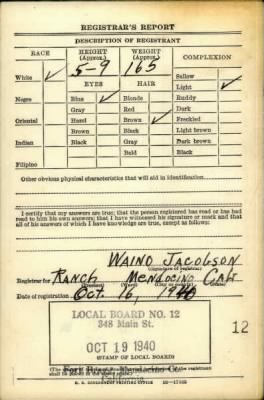 REGISTRAR'S REPORT
DESCRIPTION OF REGISTRANT
RACE HEIGHT (Approx.) WEIGHT (Approx.) COMPLEXION
White ✓ 5-9 165 Sallow
Light ✓
EYES HAIR
Negro Blue ✓ Blonde Ruddy
Gray Red Dark
Oriental Hazel Brown ✓ Freckled
Brown Black Light brown
Indian Black Gray Dark brown
Bald Black
Filipino
Other obvious physical characteristics that will aid in identification
I certify that my answers are true; that the person registered has read or has had
read to him his own answers; that I have witnessed his signature or mark and that
all of his answers of which I have knowledge are true, except as follows:
WAINO JACOBSON
(Signature of registrar)
Registrar for RANCH MENDOCINO CALF
Date of registration Oct. 16, 1940
LOCAL BOARD NO. 12
348 Main St.
12
OCT 19 1940
(STAMP OF LOCAL BOARD)
Fort Bragg, Mendocino Co.
California
U. S. GOVERNMENT PRINTING OFFICE